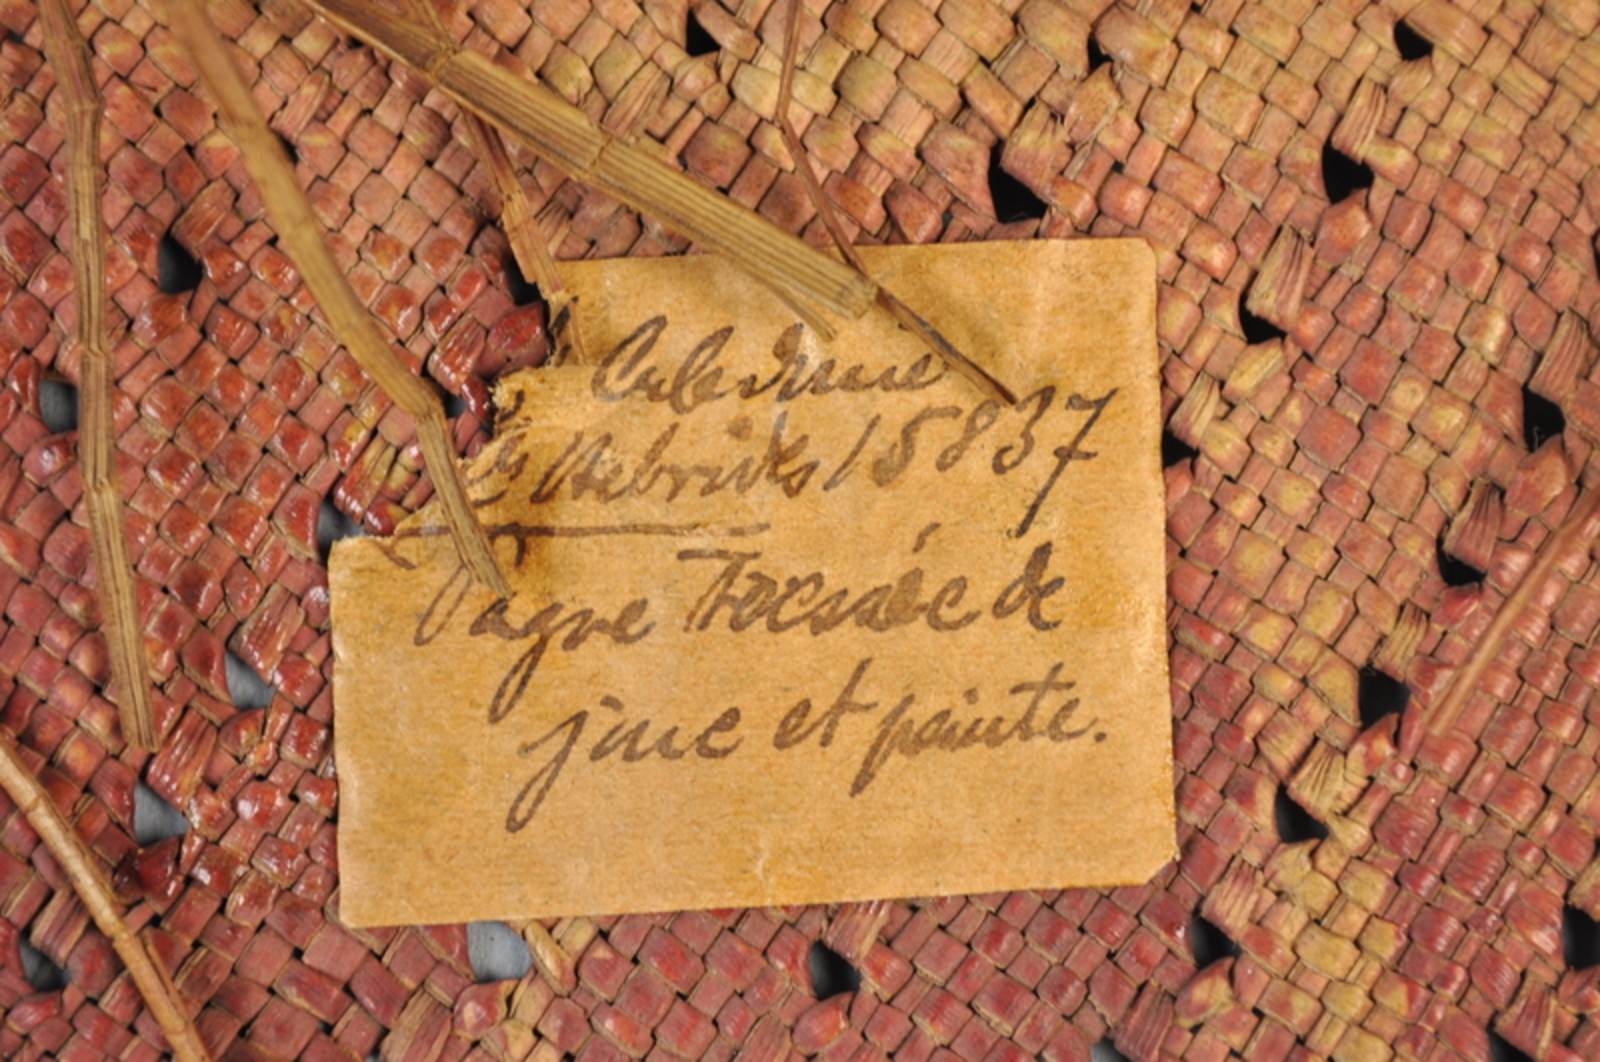 Caledonie
Hebrides 15837
Pagne Tressée de
jonc et peinte.